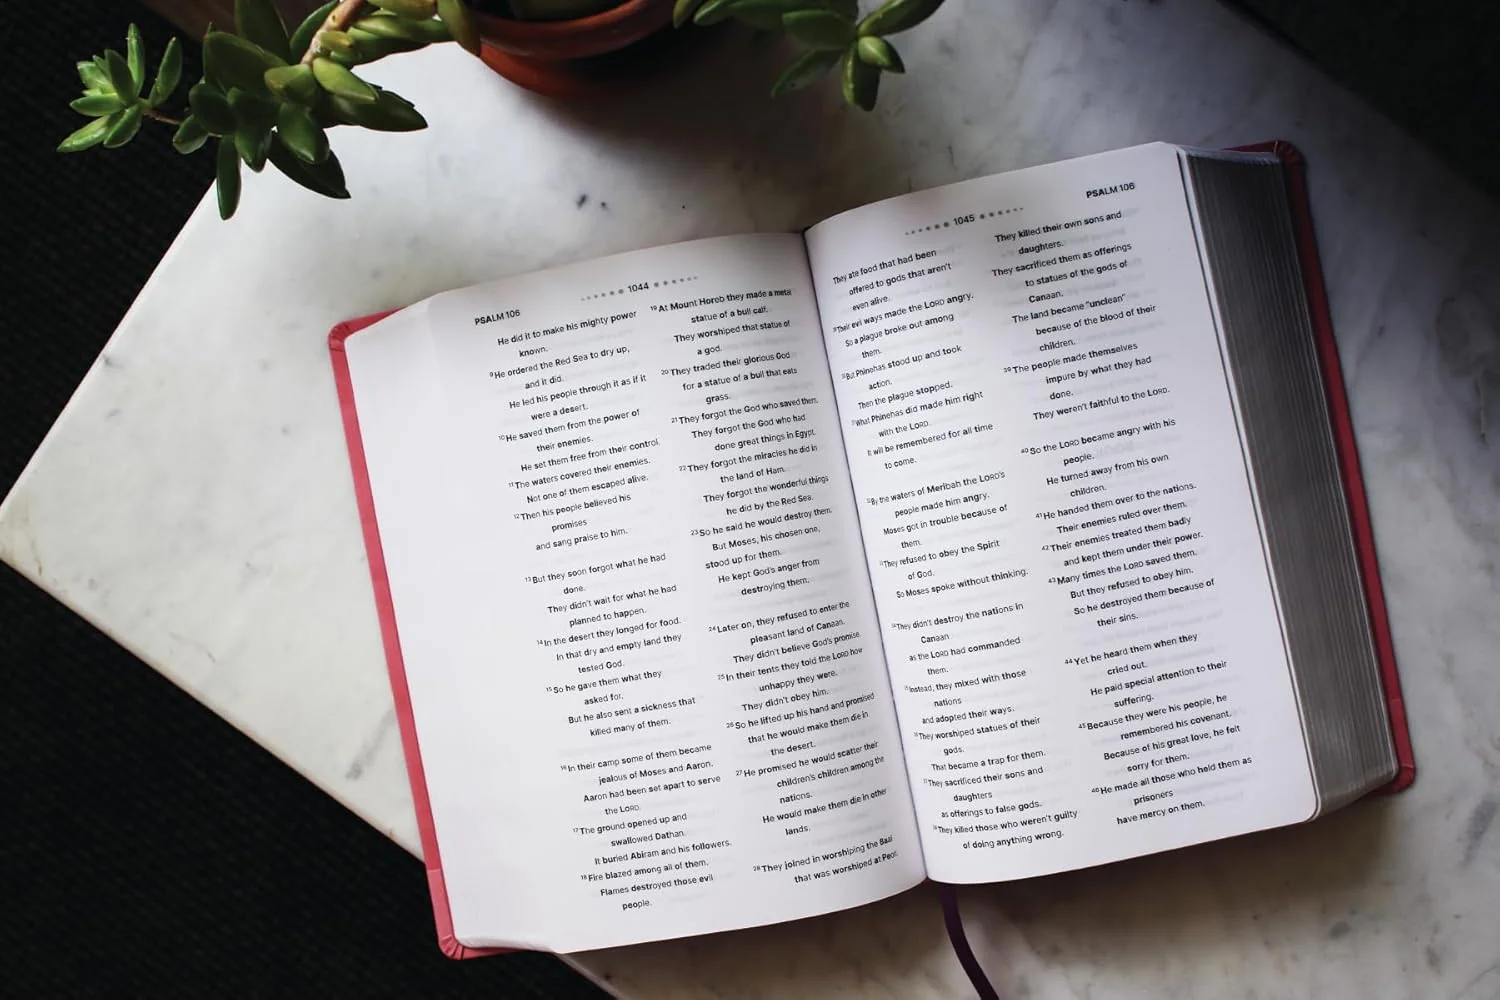 1044
PSALM 106
He did it to make his mighty power
known.
9He ordered the Red Sea to dry up,
and it did.
He led his people through it as if it
were a desert.
10He saved them from the power of
their enemies.
He set them free from their control.
11The waters covered their enemies.
Not one of them escaped alive.
12Then his people believed his
promises
and sang praise to him.
13But they soon forgot what he had
done.
They didn't wait for what he had
planned to happen.
14In the desert they longed for food.
In that dry and empty land they
tested God.
15So he gave them what they
asked for.
But he also sent a sickness that
killed many of them.
16In their camp some of them became
jealous of Moses and Aaron.
Aaron had been set apart to serve
the LORD.
17The ground opened up and
swallowed Dathan.
It buried Abiram and his followers.
18Fire blazed among all of them.
Flames destroyed those evil
people.
19At Mount Horeb they made a metal
statue of a bull calf.
They worshiped that statue of
a god.
20They traded their glorious God
for a statue of a bull that eats
grass.
21They forgot the God who saved them.
They forgot the God who had
done great things in Egypt.
22They forgot the miracles he did in
the land of Ham.
They forgot the wonderful things
he did by the Red Sea.
23So he said he would destroy them.
But Moses, his chosen one,
stood up for them.
He kept God's anger from
destroying them.
24Later on, they refused to enter the
pleasant land of Canaan.
They didn't believe God's promise.
25In their tents they told the LORD how
unhappy they were.
They didn't obey him.
26So he lifted up his hand and promised
that he would make them die in
the desert.
27He promised he would scatter their
children's children among the
nations.
He would make them die in other
lands.
28They joined in worshiping the Baal
that was worshiped at Peor.
1045
PSALM 106
They ate food that had been
offered to gods that aren't
even alive.
Their evil ways made the LORD angry.
So a plague broke out among
them.
But Phinehas stood up and took
action.
Then the plague stopped.
What Phinehas did made him right
with the LORD.
It will be remembered for all time
to come.
By the waters of Meribah the LORD's
people made him angry.
Moses got in trouble because of
them.
They refused to obey the Spirit
of God.
So Moses spoke without thinking.
They didn't destroy the nations in
Canaan
as the LORD had commanded
them.
Instead, they mixed with those
nations
and adopted their ways.
They worshiped statues of their
gods.
That became a trap for them.
They sacrificed their sons and
daughters
as offerings to false gods.
They killed those who weren't guilty
of doing anything wrong.
They killed their own sons and
daughters.
They sacrificed them as offerings
to statues of the gods of
Canaan.
The land became "unclean"
because of the blood of their
children.
39The people made themselves
impure by what they had
done.
They weren't faithful to the LORD.
40So the LORD became angry with his
people.
He turned away from his own
children.
41He handed them over to the nations.
Their enemies ruled over them.
42Their enemies treated them badly
and kept them under their power.
43Many times the LORD saved them.
But they refused to obey him.
So he destroyed them because of
their sins.
44Yet he heard them when they
cried out.
He paid special attention to their
suffering.
45Because they were his people, he
remembered his covenant.
Because of his great love, he felt
sorry for them.
46He made all those who held them as
prisoners
have mercy on them.